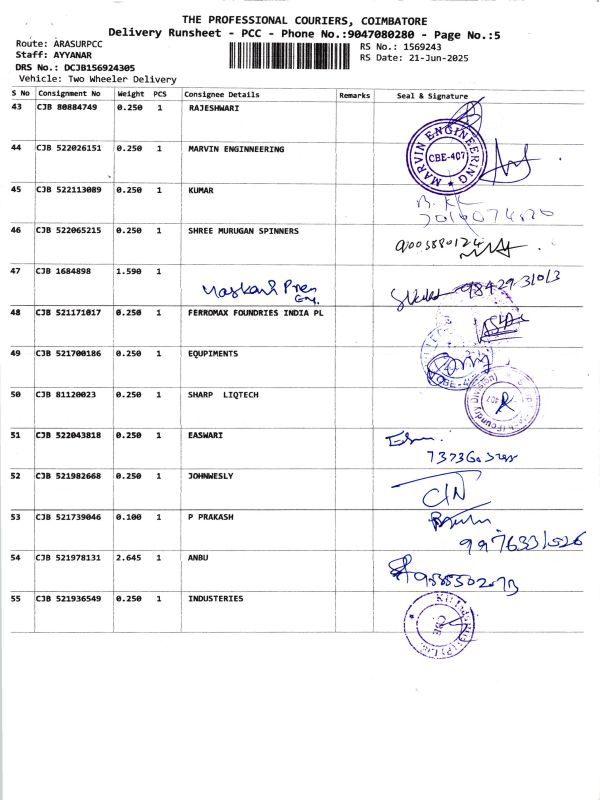 THE PROFESSIONAL COURIERS, COIMBATORE
Delivery Runsheet - PCC - Phone No.:9047080280 - Page No.:5
Route: ARASURPCC
Staff: AYYANAR
DRS No.: DCJB156924305
Vehicle: Two Wheeler Delivery
RS No.: 1569243
RS Date: 21-Jun-2025
S No Consignment No Weight PCS Consignee Details Remarks Seal & Signature
43 CJB 80884749 0.250 1 RAJESHWARI
44 CJB 522026151 0.250 1 MARVIN ENGINNEERING
MARVIN ENGINEERING
CBE-407
45 CJB 522113089 0.250 1 KUMAR
46 CJB 522065215 0.250 1 SHREE MURUGAN SPINNERS
47 CJB 1684898 1.590 1
48 CJB 521171017 0.250 1 FERROMAX FOUNDRIES INDIA PL
49 CJB 521700186 0.250 1 EQUPIMENTS
50 CJB 81120023 0.250 1 SHARP LIQTECH
51 CJB 522043818 0.250 1 EASWARI
52 CJB 521982668 0.250 1 JOHNWESLY
53 CJB 521739046 0.100 1 P PRAKASH
9976331526
54 CJB 521978131 2.645 1 ANBU
55 CJB 521936549 0.250 1 INDUSTERIES
CBE